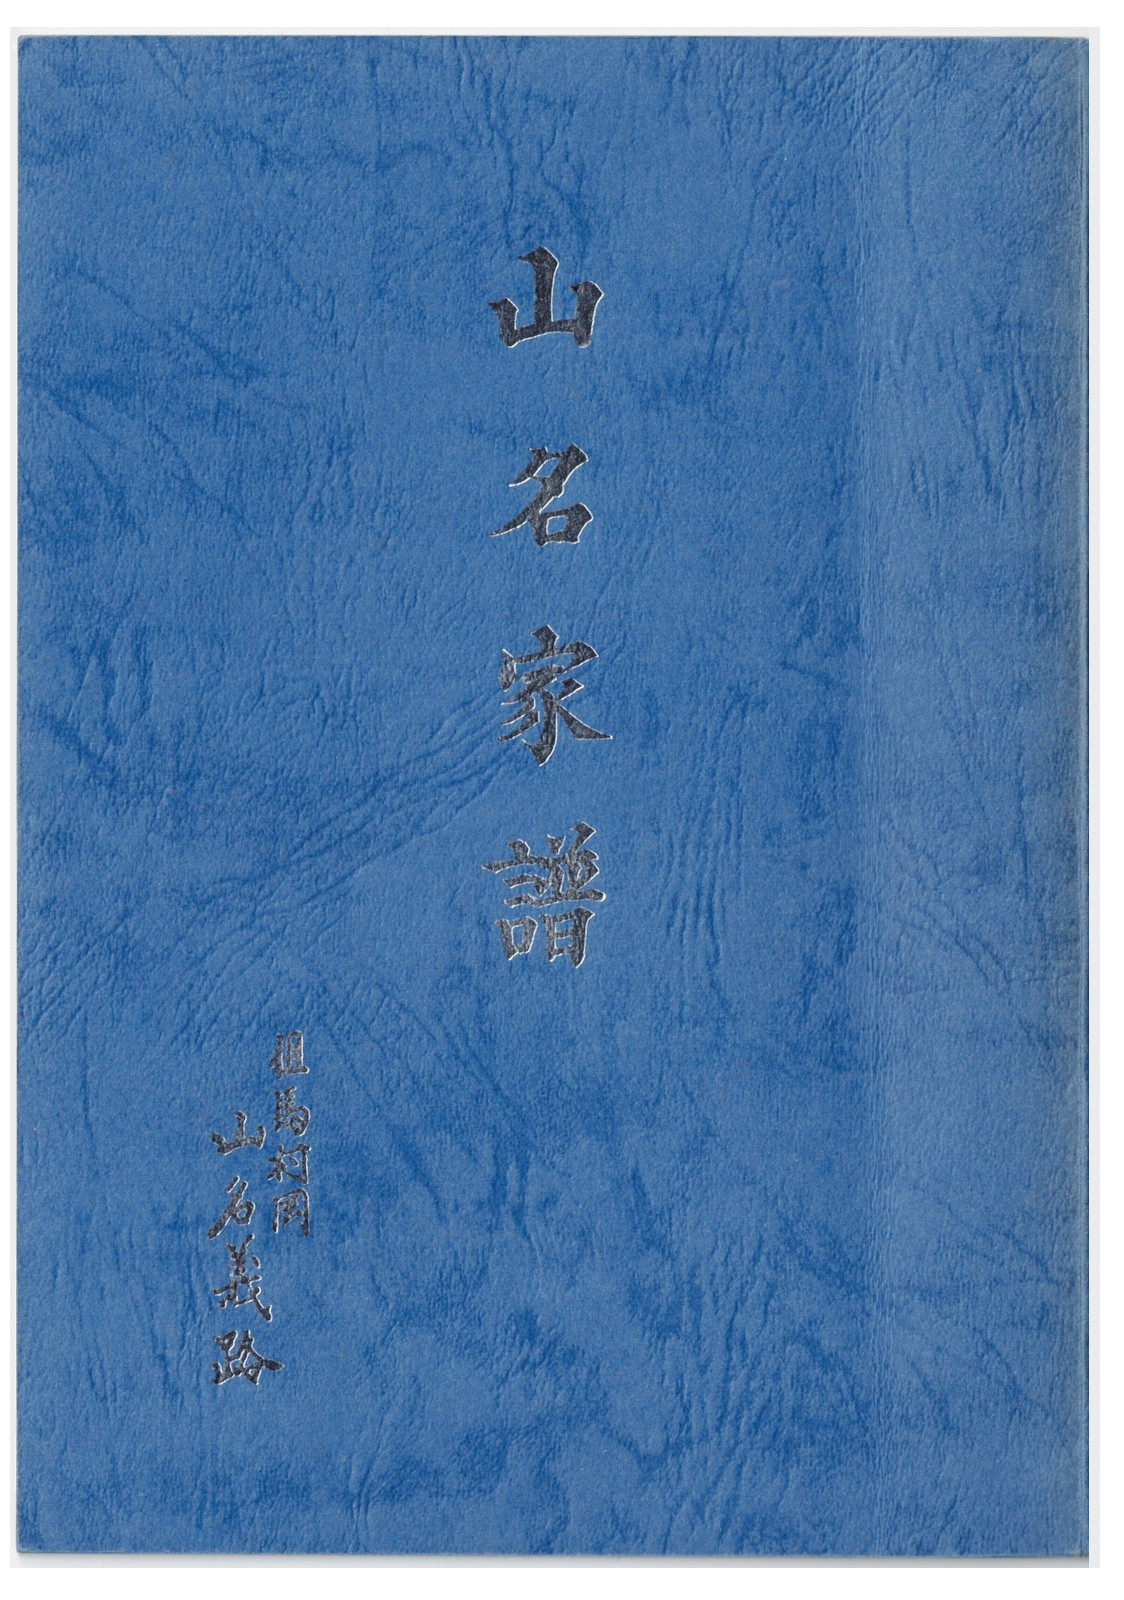 山名家譜
但馬村岡
山名義路